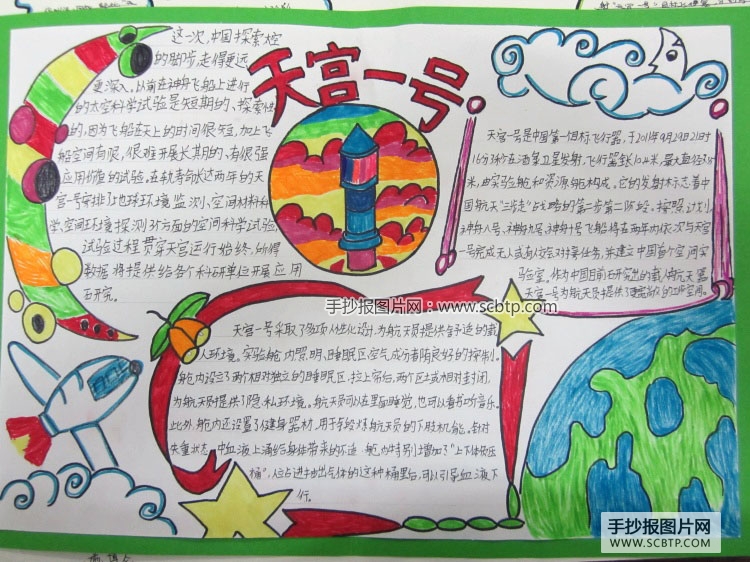 天宫一号
这一次,中国探索太空
的脚步,走得更远
更深入。以前在神舟飞船上进行
的太空科学试验是短期的、探索性
的,因为飞船在天上的时间很短,加上飞
船空间有限,很难开展长期的、有很强
应用价值的试验。在轨寿命长达两年的天
宫一号安排了地球环境监测、空间材料科
学、空间环境探测3方面的空间科学试验,
试验过程贯穿天宫运行始终,所得
数据将提供给各个科研单位开展应用
研究。
天宫一号是中国第一个目标飞行器,于2011年9月29日21时
16分3秒在酒泉卫星发射,飞行器全长10.4米,最大直径3.35
米,由实验舱和资源舱构成。它的发射标志着中
国航天"三步走"战略的第二步第二阶段。按照计划,
神舟八号、神舟九号、神舟十号飞船将在两年内依次与天宫
一号完成无人或有人交会对接任务,并建立中国首个空间实
验室。作为中国目前研究出的载人航天器
天宫一号为航天员提供了更加的工作空间。
手抄报图片网:www.scbtp.com
天宫一号采取了强的人性化设计,为航天员提供舒适的载
人环境。实验舱内照明、睡眠区空气成分都有良好的控制。
舱内设立了两个相对独立的睡眠区,拉上帘后,两个区域相对封闭,
为航天员提供了隐私环境。航天员可以在里面睡觉,也可以看书听音乐。
此外,舱内还设置了健身器材,用于锻炼航天员的下肢机能。针对
失重状态 中血液上涌给身体带来的不适,舱内特别增加了"上下体负压
桶",人站进抽出气体的这种桶里后,可以引导血液下
行。
手抄报图片网
WWW.SCBTP.COM